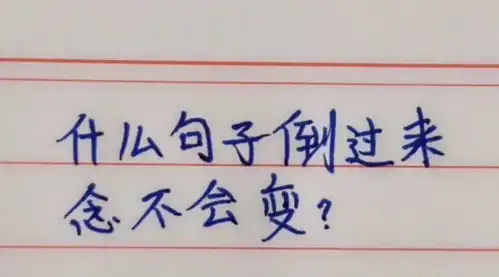 什么句子倒过来
念不会变?